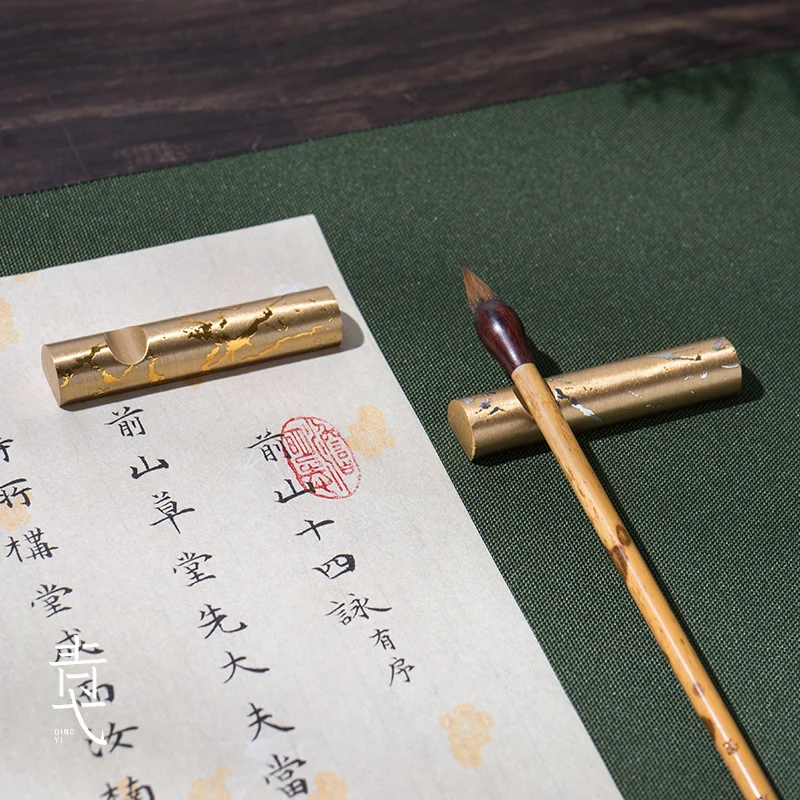 前山十四詠有序
前山草堂先大夫當
所構堂成而汝楠
青弋
QING
YI